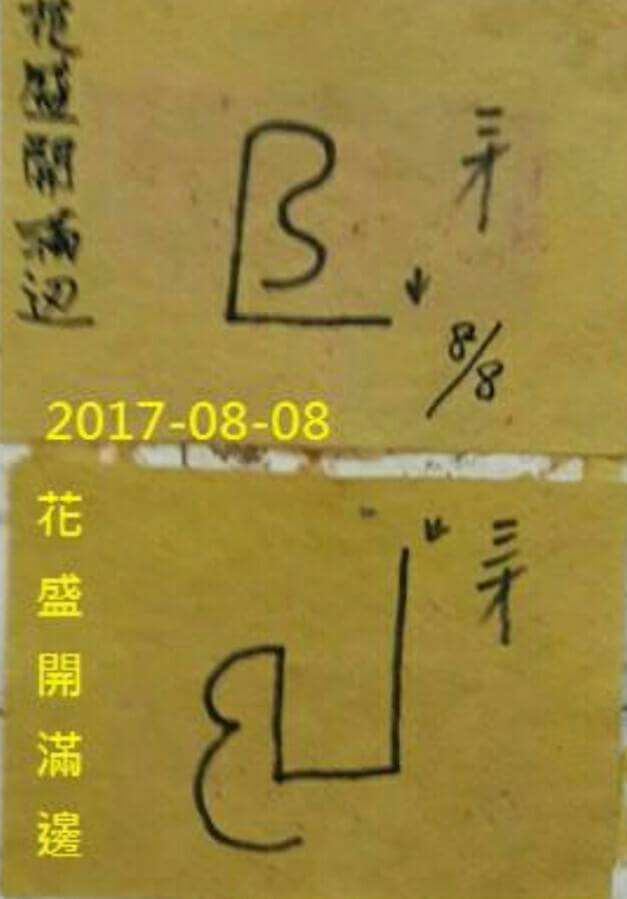 花盛開滿边
三才
8/8
2017-08-08
花盛開滿邊
三才